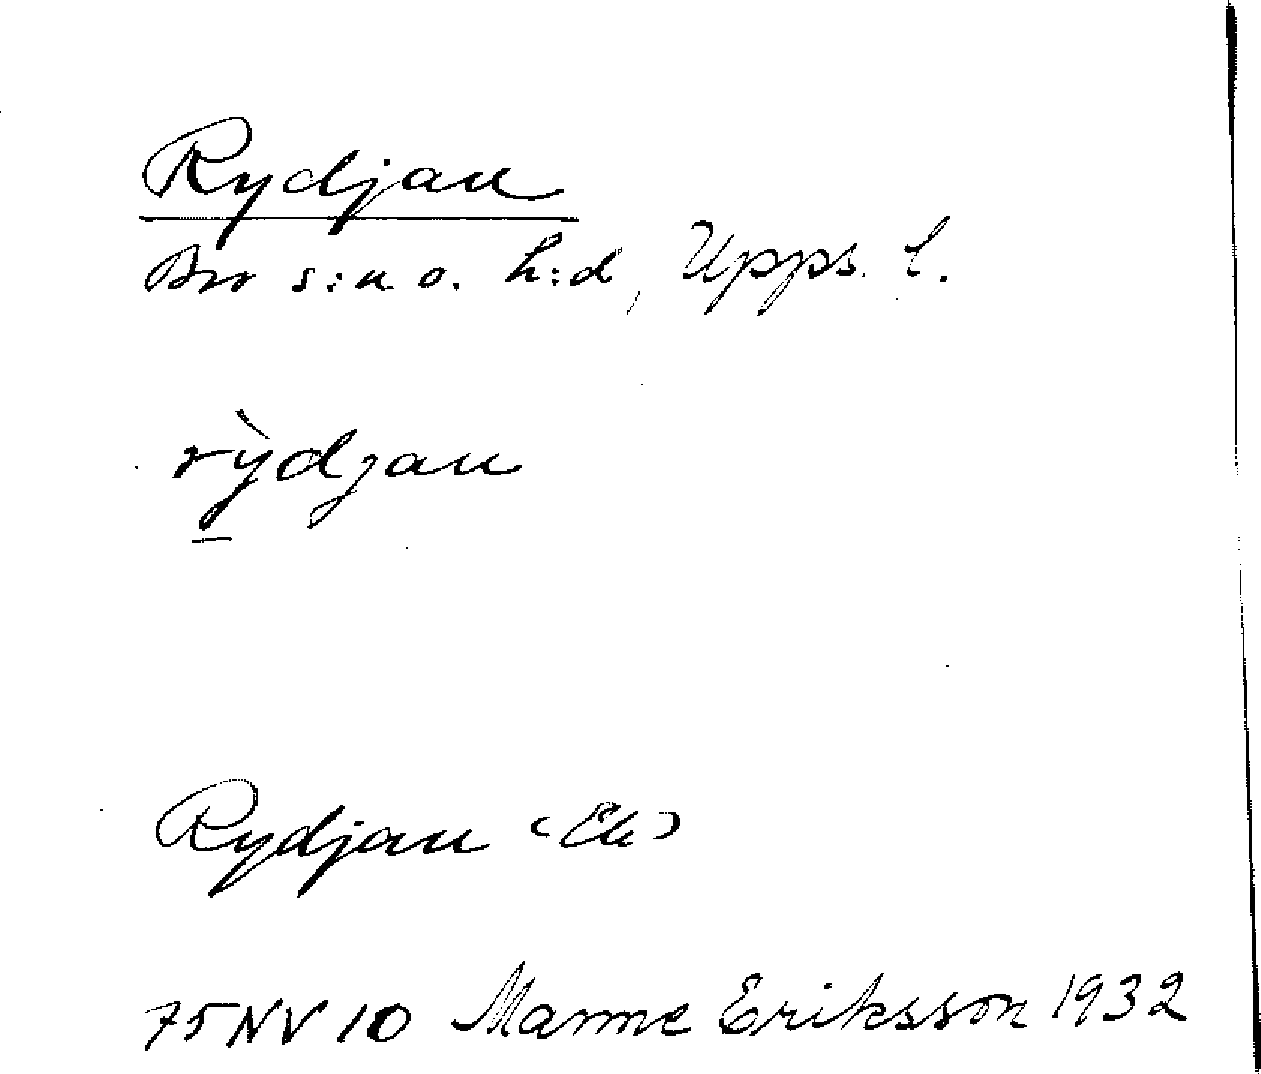 Rydjan
Bro s:n o. h:d, Upps. l.
rỳdjan
Rydjan (Ek)
75NV 10 Manne Eriksson 1932